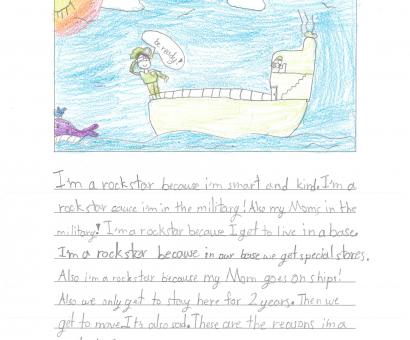 be ready!
I'm a rockstar because i'm smart and kind. I'm a
rockstar cause i'm in the military! Also my Moms in the
military! I'm a rockstar because I get to live in a base.
I'm a rockstar because in our base we get special stores.
Also i'm a rockstar because my Mom goes on ships!
Also we only get to stay here for 2 years. Then we
get to move. It's also sad. These are the reasons i'm a